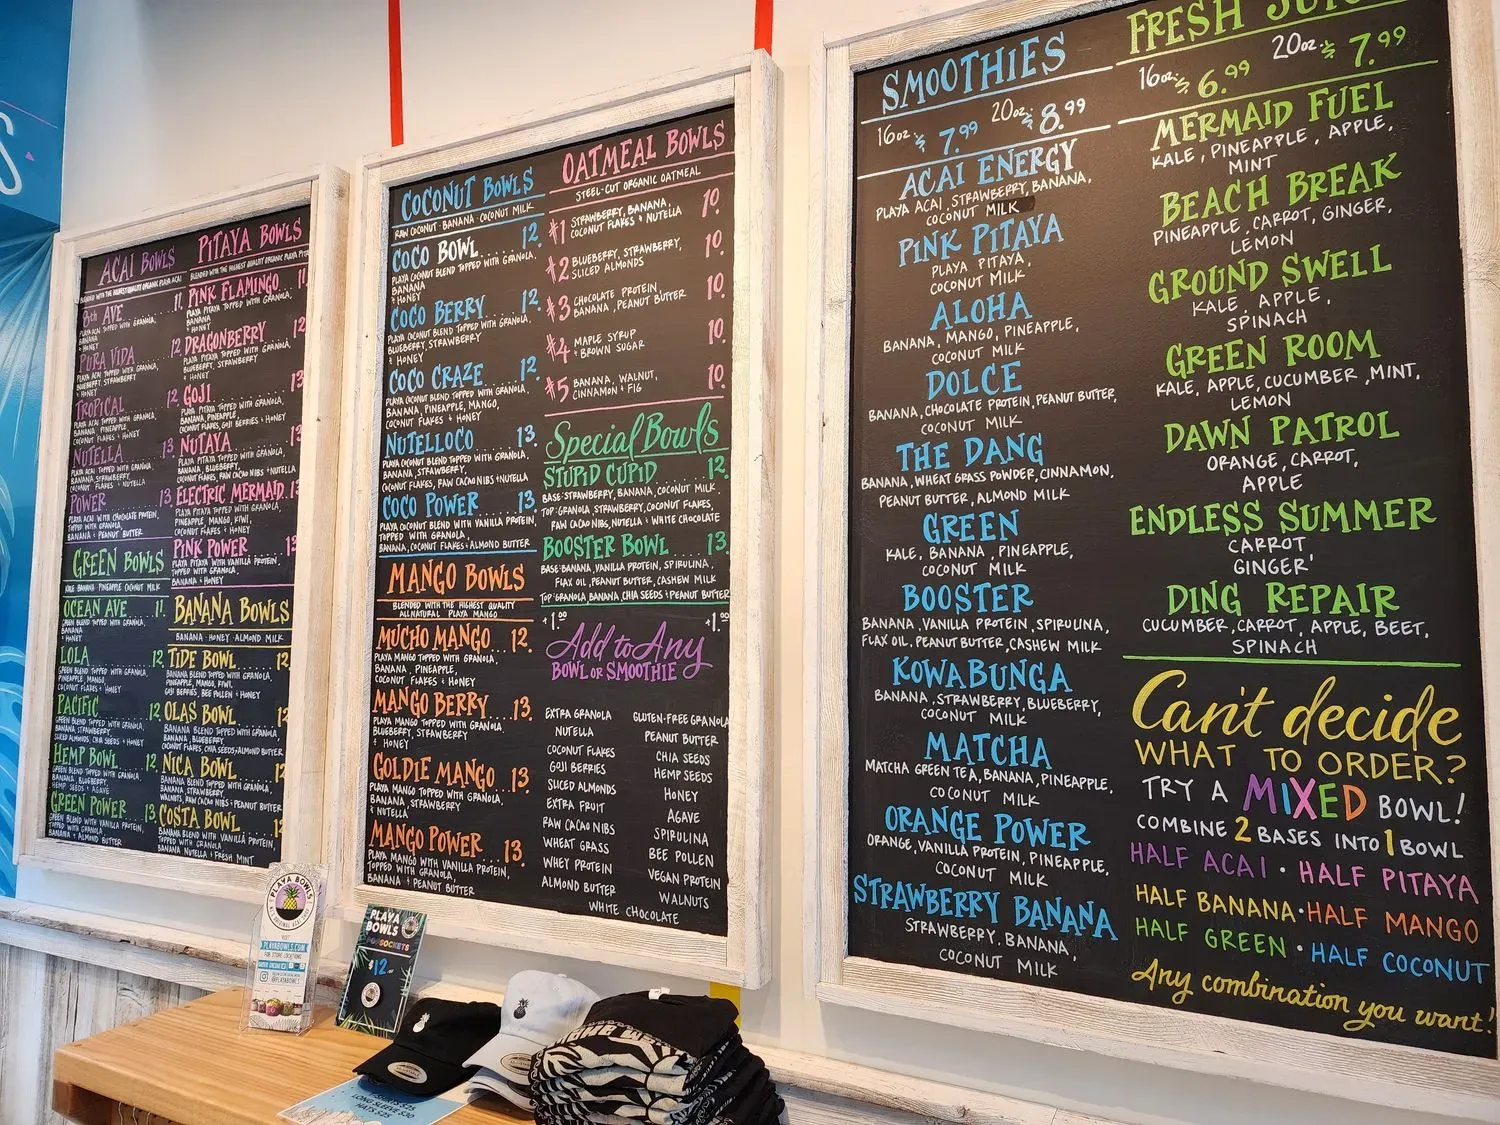 S
ACAI BOWLS
BLENDED WITH THE HIGHEST QUALITY ORGANIC PLAYA ACAI
8th AVE. 11.
PLAYA ACAI TOPPED WITH GRANOLA,
BANANA
& HONEY
PURA VIDA 12
PLAYA ACAI TOPPED WITH GRANOLA,
BLUEBERRY, STRAWBERRY
& HONEY
TROPICAL 12
PLAYA ACAI TOPPED WITH GRANOLA,
BANANA, PINEAPPLE,
COCONUT FLAKES & HONEY
NUTELLA 13
PLAYA ACAI TOPPED WITH GRANOLA,
BANANA, STRAWBERRY,
COCONUT FLAKES & NUTELLA
POWER 13
PLAYA ACAI WITH CHOCOLATE PROTEIN,
TOPPED WITH GRANOLA,
BANANA & PEANUT BUTTER
GREEN BOWLS
KALE BANANA PINEAPPLE COCONUT MILK
OCEAN AVE 11.
GREEN BLEND TOPPED WITH GRANOLA,
BANANA
& HONEY
LOLA 12
GREEN BLEND TOPPED WITH GRANOLA,
PINEAPPLE, MANGO,
COCONUT FLAKES & HONEY
PACIFIC 12
GREEN BLEND TOPPED WITH GRANOLA,
BANANA, STRAWBERRY,
SLICED ALMONDS, CHIA SEEDS & HONEY
HEMP BOWL 12
GREEN BLEND TOPPED WITH GRANOLA,
BANANA, BLUEBERRY,
HEMP SEEDS & AGAVE
GREEN POWER 13
GREEN BLEND WITH VANILLA PROTEIN,
TOPPED WITH GRANOLA,
BANANA & ALMOND BUTTER
PITAYA BOWLS
BLENDED WITH THE HIGHEST QUALITY ORGANIC PLAYA PITAYA
PINK FLAMINGO 11
PLAYA PITAYA TOPPED WITH GRANOLA,
BANANA
& HONEY
DRAGONBERRY 12
PLAYA PITAYA TOPPED WITH GRANOLA,
BLUEBERRY, STRAWBERRY
& HONEY
GOJI 13
PLAYA PITAYA TOPPED WITH GRANOLA,
BANANA, PINEAPPLE,
COCONUT FLAKES, GOJI BERRIES & HONEY
NUTAYA 13
PLAYA PITAYA TOPPED WITH GRANOLA,
BANANA, BLUEBERRY,
COCONUT FLAKES, RAW CACAO NIBS & NUTELLA
ELECTRIC MERMAID 13
PLAYA PITAYA TOPPED WITH GRANOLA,
PINEAPPLE, MANGO, KIWI,
COCONUT FLAKES & HONEY
PINK POWER 13
PLAYA PITAYA WITH VANILLA PROTEIN,
TOPPED WITH GRANOLA,
BANANA & HONEY
BANANA BOWLS
BANANA · HONEY · ALMOND MILK
TIDE BOWL 12
BANANA BLEND TOPPED WITH GRANOLA,
PINEAPPLE, MANGO, KIWI,
GOJI BERRIES, BEE POLLEN & HONEY
OLAS BOWL 12
BANANA BLEND TOPPED WITH GRANOLA,
BANANA, BLUEBERRY,
COCONUT FLAKES, CHIA SEEDS & ALMOND BUTTER
NICA BOWL 12
BANANA BLEND TOPPED WITH GRANOLA,
BANANA, STRAWBERRY,
WALNUTS, RAW CACAO NIBS & PEANUT BUTTER
COSTA BOWL 12
BANANA BLEND WITH VANILLA PROTEIN,
TOPPED WITH GRANOLA, STRAWBERRY,
BANANA, NUTELLA & FRESH MINT
COCONUT BOWLS
RAW COCONUT · BANANA · COCONUT MILK
COCO BOWL 12.
PLAYA COCONUT BLEND TOPPED WITH GRANOLA,
BANANA
& HONEY
COCO BERRY 12.
PLAYA COCONUT BLEND TOPPED WITH GRANOLA,
BLUEBERRY, STRAWBERRY
& HONEY
COCO CRAZE 12.
PLAYA COCONUT BLEND TOPPED WITH GRANOLA,
BANANA, PINEAPPLE, MANGO,
COCONUT FLAKES & HONEY
NUTELLOCO 13.
PLAYA COCONUT BLEND TOPPED WITH GRANOLA,
BANANA, STRAWBERRY,
COCONUT FLAKES, RAW CACAO NIBS & NUTELLA
COCO POWER 13
PLAYA COCONUT BLEND WITH VANILLA PROTEIN,
TOPPED WITH GRANOLA,
BANANA, COCONUT FLAKES & ALMOND BUTTER
MANGO BOWLS
BLENDED WITH THE HIGHEST QUALITY
ALL NATURAL PLAYA MANGO
MUCHO MANGO 12.
PLAYA MANGO TOPPED WITH GRANOLA,
BANANA, PINEAPPLE,
COCONUT FLAKES & HONEY
MANGO BERRY 13.
PLAYA MANGO TOPPED WITH GRANOLA,
BLUEBERRY, STRAWBERRY
& HONEY
GOLDIE MANGO 13.
PLAYA MANGO TOPPED WITH GRANOLA,
BANANA, STRAWBERRY
& NUTELLA
MANGO POWER 13.
PLAYA MANGO WITH VANILLA PROTEIN,
TOPPED WITH GRANOLA,
BANANA & PEANUT BUTTER
OATMEAL BOWLS
STEEL-CUT ORGANIC OATMEAL
#1 STRAWBERRY, BANANA, 10.
COCONUT FLAKES & NUTELLA
#2 BLUEBERRY, STRAWBERRY, 10.
SLICED ALMONDS
#3 CHOCOLATE PROTEIN, 10.
BANANA, PEANUT BUTTER
#4 MAPLE SYRUP 10.
& BROWN SUGAR
#5 BANANA, WALNUT, 10.
CINNAMON & FIG
Special Bowls
STUPID CUPID 12.
BASE: STRAWBERRY, BANANA, COCONUT MILK
TOP: GRANOLA, STRAWBERRY, COCONUT FLAKES,
RAW CACAO NIBS, NUTELLA & WHITE CHOCOLATE
BOOSTER BOWL 13.
BASE: BANANA, VANILLA PROTEIN, SPIRULINA,
FLAX OIL, PEANUT BUTTER, CASHEW MILK
TOP: GRANOLA, BANANA, CHIA SEEDS & PEANUT BUTTER
+1.00 +1.00
Add to Any
BOWL OR SMOOTHIE
EXTRA GRANOLA
NUTELLA
COCONUT FLAKES
GOJI BERRIES
SLICED ALMONDS
EXTRA FRUIT
RAW CACAO NIBS
WHEAT GRASS
WHEY PROTEIN
ALMOND BUTTER
GLUTEN-FREE GRANOLA
PEANUT BUTTER
CHIA SEEDS
HEMP SEEDS
HONEY
AGAVE
SPIRULINA
BEE POLLEN
VEGAN PROTEIN
WALNUTS
WHITE CHOCOLATE
SMOOTHIES
16oz. $7.99 20oz. $8.99
ACAI ENERGY
PLAYA ACAI, STRAWBERRY, BANANA,
COCONUT MILK
PINK PITAYA
PLAYA PITAYA,
COCONUT MILK
ALOHA
BANANA, MANGO, PINEAPPLE,
COCONUT MILK
DOLCE
BANANA, CHOCOLATE PROTEIN, PEANUT BUTTER,
COCONUT MILK
THE DANG
BANANA, WHEAT GRASS POWDER, CINNAMON,
PEANUT BUTTER, ALMOND MILK
GREEN
KALE, BANANA, PINEAPPLE,
COCONUT MILK
BOOSTER
BANANA, VANILLA PROTEIN, SPIRULINA,
FLAX OIL, PEANUT BUTTER, CASHEW MILK
KOWABUNGA
BANANA, STRAWBERRY, BLUEBERRY,
COCONUT MILK
MATCHA
MATCHA GREEN TEA, BANANA, PINEAPPLE,
COCONUT MILK
ORANGE POWER
ORANGE, VANILLA PROTEIN, PINEAPPLE,
COCONUT MILK
STRAWBERRY BANANA
STRAWBERRY, BANANA,
COCONUT MILK
FRESH JUICE
16oz. $6.99 20oz. $7.99
MERMAID FUEL
KALE, PINEAPPLE, APPLE,
MINT
BEACH BREAK
PINEAPPLE, CARROT, GINGER,
LEMON
GROUND SWELL
KALE, APPLE,
SPINACH
GREEN ROOM
KALE, APPLE, CUCUMBER, MINT,
LEMON
DAWN PATROL
ORANGE, CARROT,
APPLE
ENDLESS SUMMER
CARROT,
GINGER
DING REPAIR
CUCUMBER, CARROT, APPLE, BEET,
SPINACH
Can't decide
WHAT TO ORDER?
TRY A MIXED BOWL!
COMBINE 2 BASES INTO 1 BOWL
HALF ACAI · HALF PITAYA
HALF BANANA · HALF MANGO
HALF GREEN · HALF COCONUT
Any combination you want!
PLAYA BOWLS
VISIT
PLAYABOWLS.COM
FOR STORE LOCATIONS
@PLAYABOWLS
PLAYA
BOWLS
POPSOCKETS
$12.
SHIRTS $25
LONG SLEEVE $30
HATS $25